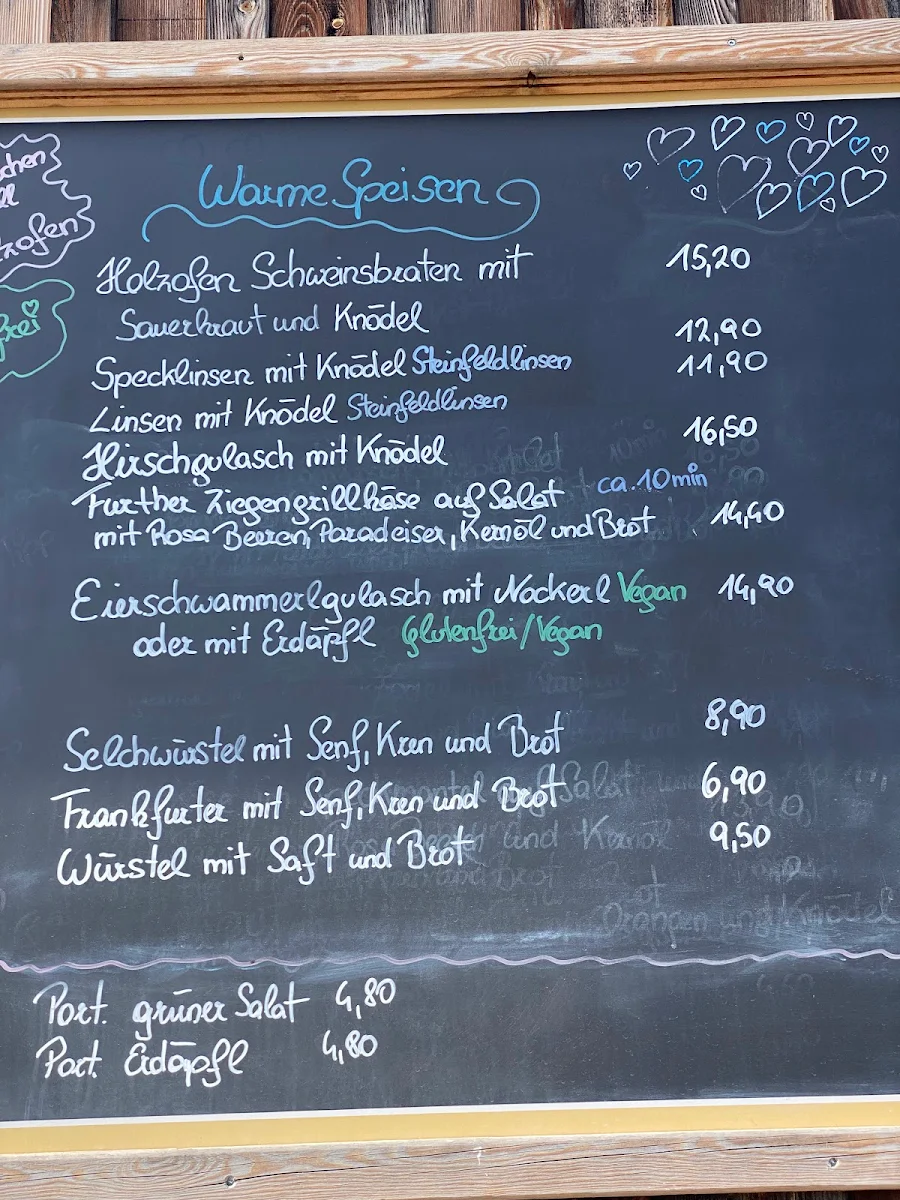 Warme Speisen
Holzofen Schweinsbraten mit 15,20
Sauerkraut und Knödel
Specklinsen mit Knödel Steinfeldlinsen 12,90
Linsen mit Knödel Steinfeldlinsen 11,90
Hirschgulasch mit Knödel 16,50
Further Ziegengrillkäse auf Salat ca. 10 min
mit Rosa Beeren, Paradeiser, Kernöl und Brot 14,40
Eierschwammerlgulasch mit Nockerl Vegan 14,90
oder mit Erdäpfl Glutenfrei/Vegan
Selchwürstel mit Senf, Kren und Brot 8,90
Frankfurter mit Senf, Kren und Brot 6,90
Würstel mit Saft und Brot 9,50
Port. grüner Salat 4,80
Port. Erdäpfl 4,80